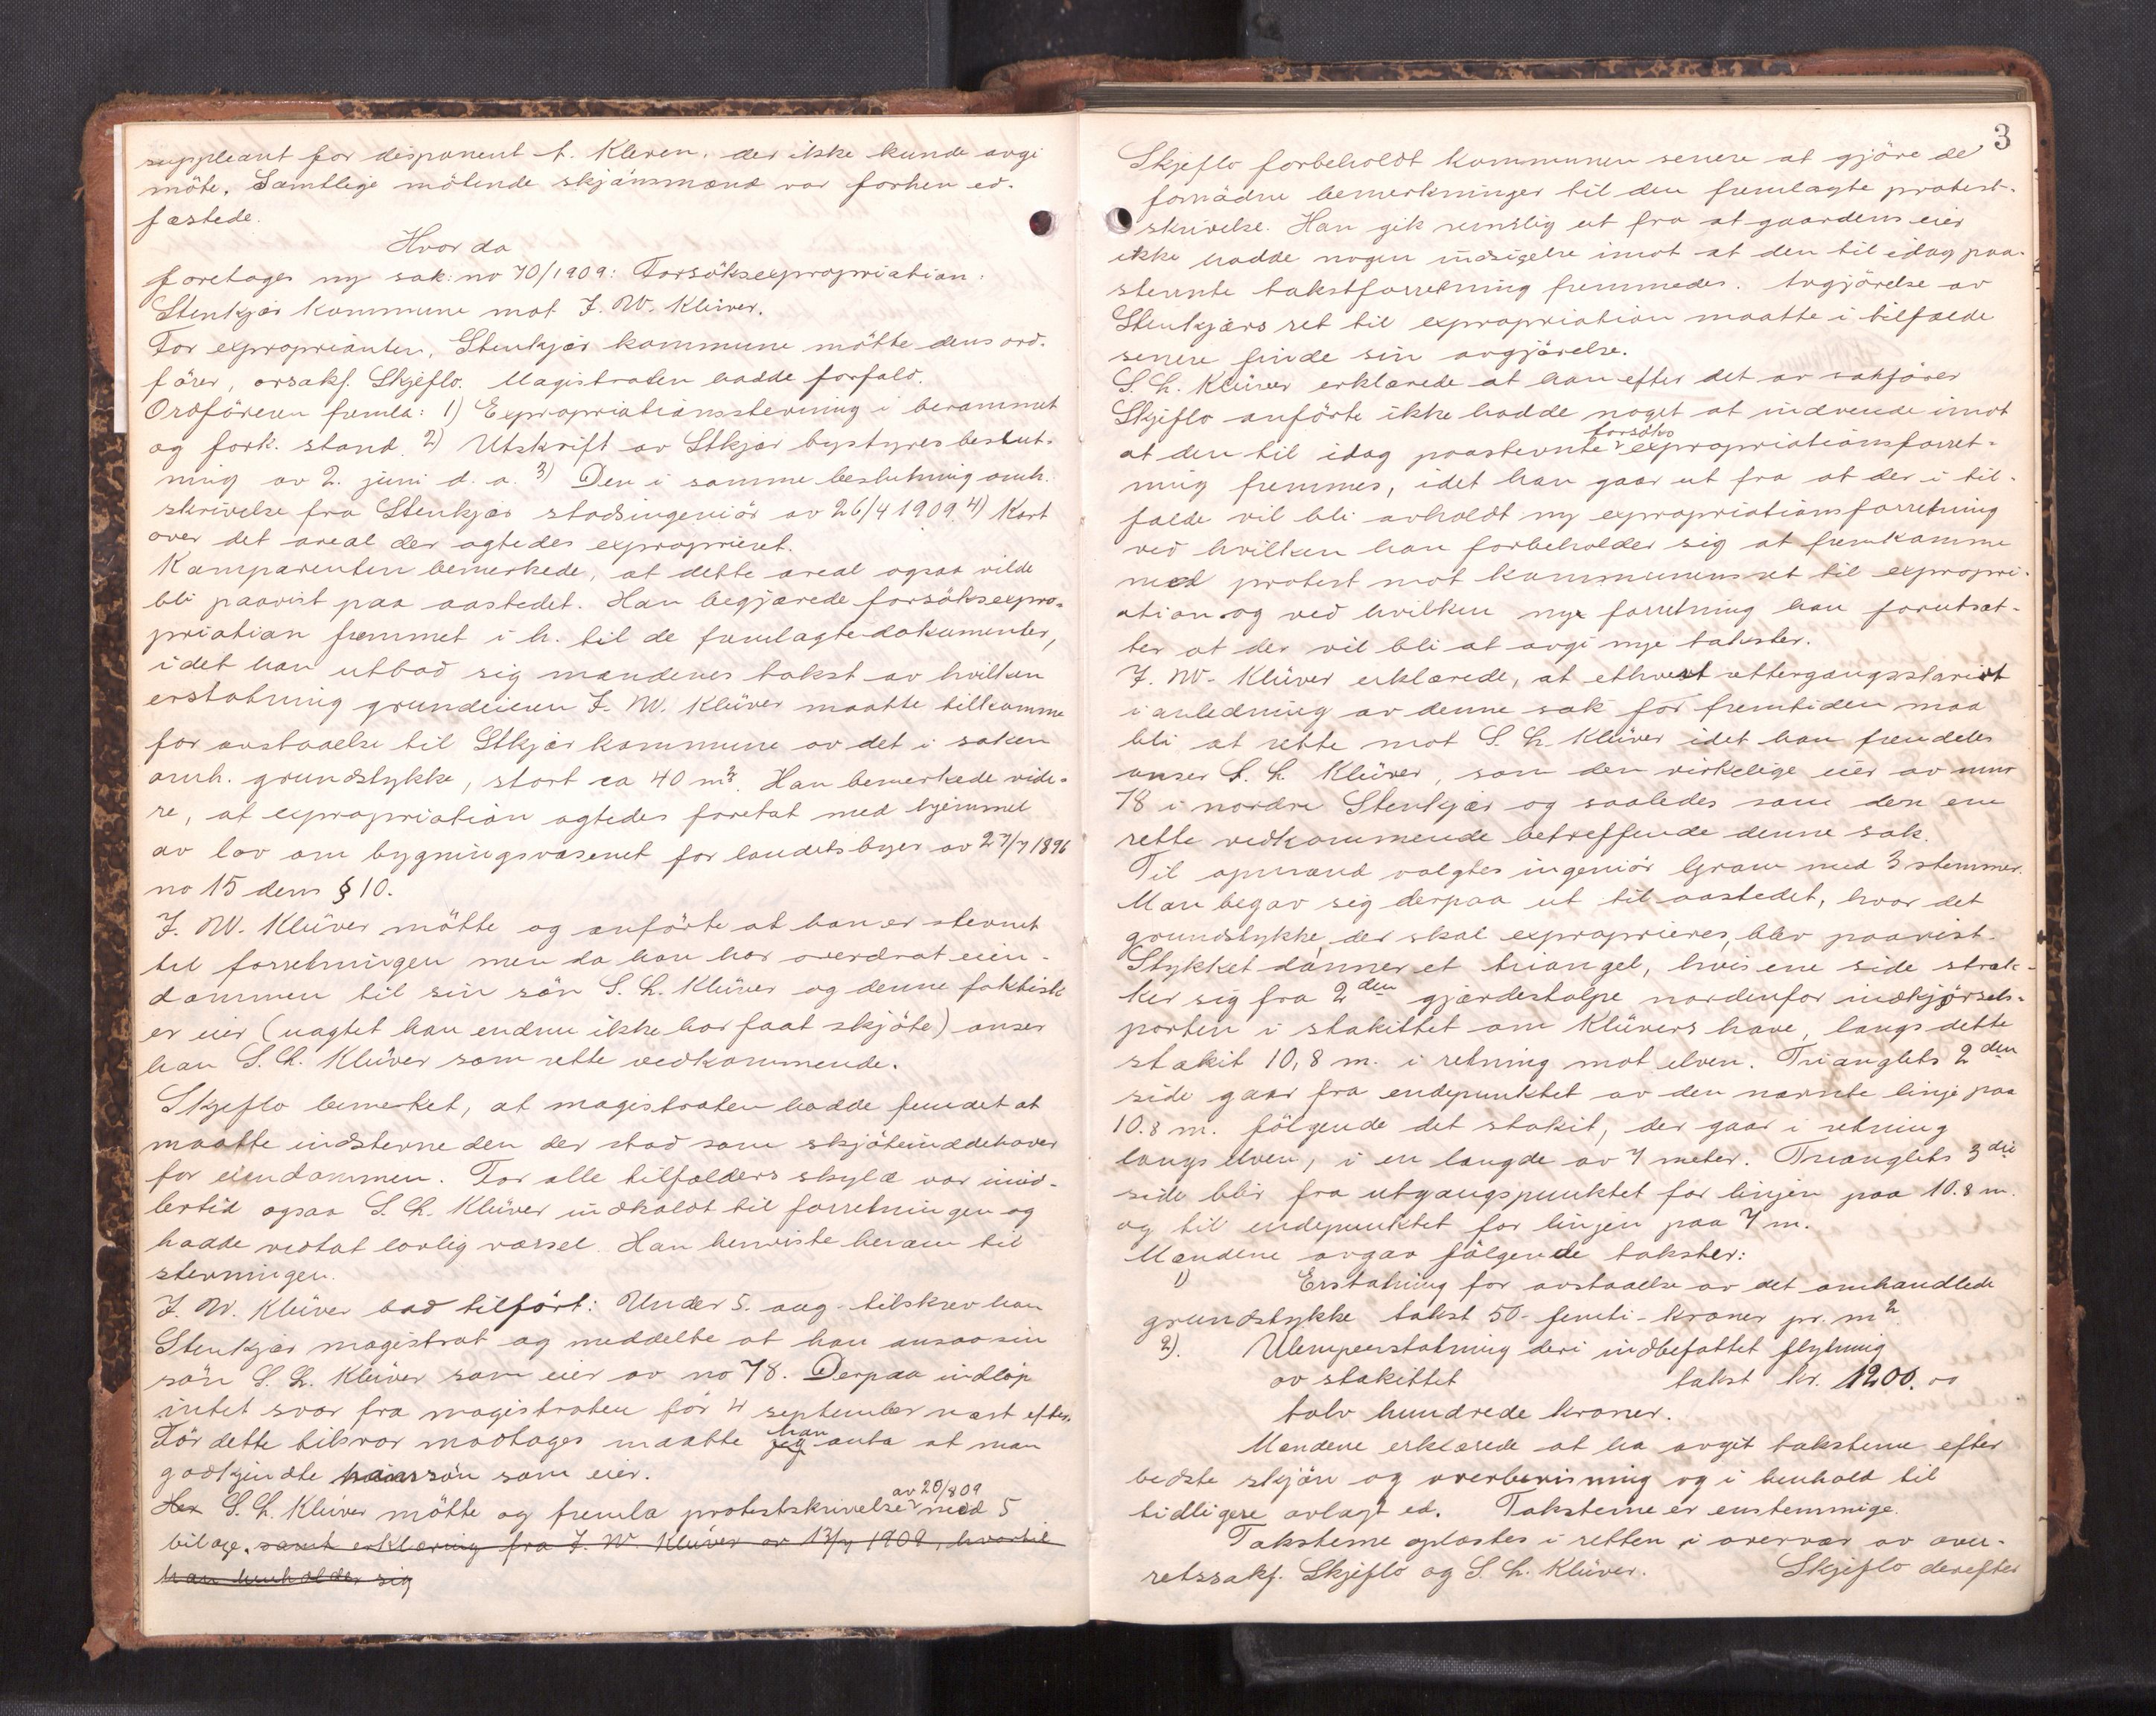 suppleant for disponent A. Kleven, der ikke kunde avgi
möte. Samtlige mötende skjönsmænd var forhen ed-
fæstede.
Hvor da
foretages ny sak: no 70/1909: Forsöksexpropriation:
Stenkjær kommune mot J. W. Klüver.
For exproprianten, Stenkjær kommune mötte dens ord-
förer, orsakf. Skjeflo. Magistraten hadde forfald.
Ordföreren fremla: 1) Expropriationsstevning i berammet
og fork. stand. 2) Utskrift av Stkjær bystyres beslut-
ning av 2. juni d. a. 3) Den i samme beslutning omh.
skrivelse fra Stenkjær stadsingeniör av 26/4 1909. 4) Kart
over det areal der agtedes exproprieret.
Komparenten bemerkede, at dette areal ogsaa vilde
bli paavist paa aastedet. Han begjærede forsöksexpro-
priation fremmet i h. til de fremlagte dokumenter,
idet han utbad sig mændenes takst av hvilken
erstatning grundeieren J. W. Klüver maatte tilkomme
for avstaaelse til Stkjær kommune av det i saken
omh. grundstykke, stort ca 40 m². Han bemerkede vide-
re, at expropriation agtedes foretat med hjemmel
av lov om bygningsvæsenet for landets byer av 27/7 1896
no 15 dens § 10.
J. W. Klüver mötte og anförte at han er stevnet
til forretningen men da han har overdrat eien-
dommen til sin sön S. L. Klüver og denne faktisk
er eier (uagtet han endnu ikke har faat skjöte) anser
han S. L. Klüver som rette vedkommende.
Skjeflo bemerket, at magistraten hadde fundet at
maatte indstevne den der stod som skjöteinddehaver
for eiendommen. For alle tilfælders skyld var imid-
lertid ogsaa S. L. Klüver indkaldt til forretningen og
hadde vedtat lovlig varsel. Han henviste herom til
stevningen.
J. W. Klüver bad tilfört: Under 5. aug. tilskrev han
Stenkjær magistrat og meddelte at han ansaa sin
sön S. L. Klüver som eier av no 78. Derpaa indlöp
intet svar fra magistraten för 4 september næst efter.
För dette tilsvar modtages maatte jeg han anta at man
godkjendte hans sön som eier.
S. L. Klüver mötte og fremla protestskrivelse av 20/8 09 med 5
bilage, samt erklæring fra J. W. Klüver av 13/7 1909, hvortil
han henholder sig
3
Skjeflo forbeholdt kommunen senere at gjöre de
fornödne bemerkninger til den fremlagte protest-
skrivelse. Han gik nemlig ut fra at gaardens eier
ikke hadde nogen indsigelse imot at den til idag paa-
stevnte takstforretning fremmedes. Avgjörelse av
Stenkjærs ret til expropriation maatte i tilfælde
senere finde sin avgjörelse.
S. L. Klüver erklærede at han efter det av sakförer
Skjeflo anförte ikke hadde noget at indvende imot
at den til idag paastevnte forsöks expropriationsforret-
ning fremmes, idet han gaar ut fra at der i til-
fælde vil bli avholdt ny expropriationsforretning
ved hvilken han forbeholder sig at fremkomme
med protest mot kommunens ret til expropri-
ation og ved hvilken nye forretning han forutsæt-
ter at der vil bli at avgi nye takster.
J. W. Klüver erklærede, at ethvert rettergangsskridt
i anledning av denne sak for fremtiden maa
bli at rette mot S. L. Klüver idet han fremdeles
anser S. L. Klüver, som den virkelige eier av mnr
78 i nordre Stenkjær og saaledes som den ene
rette vedkommende betreffende denne sak.
Til opmand valgtes ingeniör Gram med 3 stemmer.
Man begav sig derpaa ut til aastedet, hvor det
grundstykke, der skal exproprieres, blev paavist.
Stykket danner et triangel, hvis ene side stræk-
ker sig fra 2den gjærdestolpe nordenfor indkjörsels-
porten i stakittet om Klüvers have, langs dette
stakit 10,8 m. i retning mot elven. Trianglets 2den
side gaar fra endepunktet av den nævnte linje paa
10.8 m. fölgende det stakit, der gaar i retning
langs elven, i en længde av 7 meter. Trianglets 3die
side blir fra utgangspunktet for linjen paa 10.8 m.
og til endepunktet for linjen paa 7 m.
Mændene avgav fölgende takster:
1) Erstatning for avstaaelse av det omhandlede
grundstykke takst 50 - femti - kroner pr. m².
2). Ulempeerstatning deri indbefattet flytning
av stakittet takst kr. 1200.00
tolv hundrede kroner.
Mændene erklærede at ha avgit taksterne efter
bedste skjön og overbevisning og i henhold til
tidligere avlagt ed. Taksterne er enstemmige.
Taksterne oplæstes i retten i overvær av over-
retssakf. Skjeflo og S. L. Klüver. Skjeflo derefter